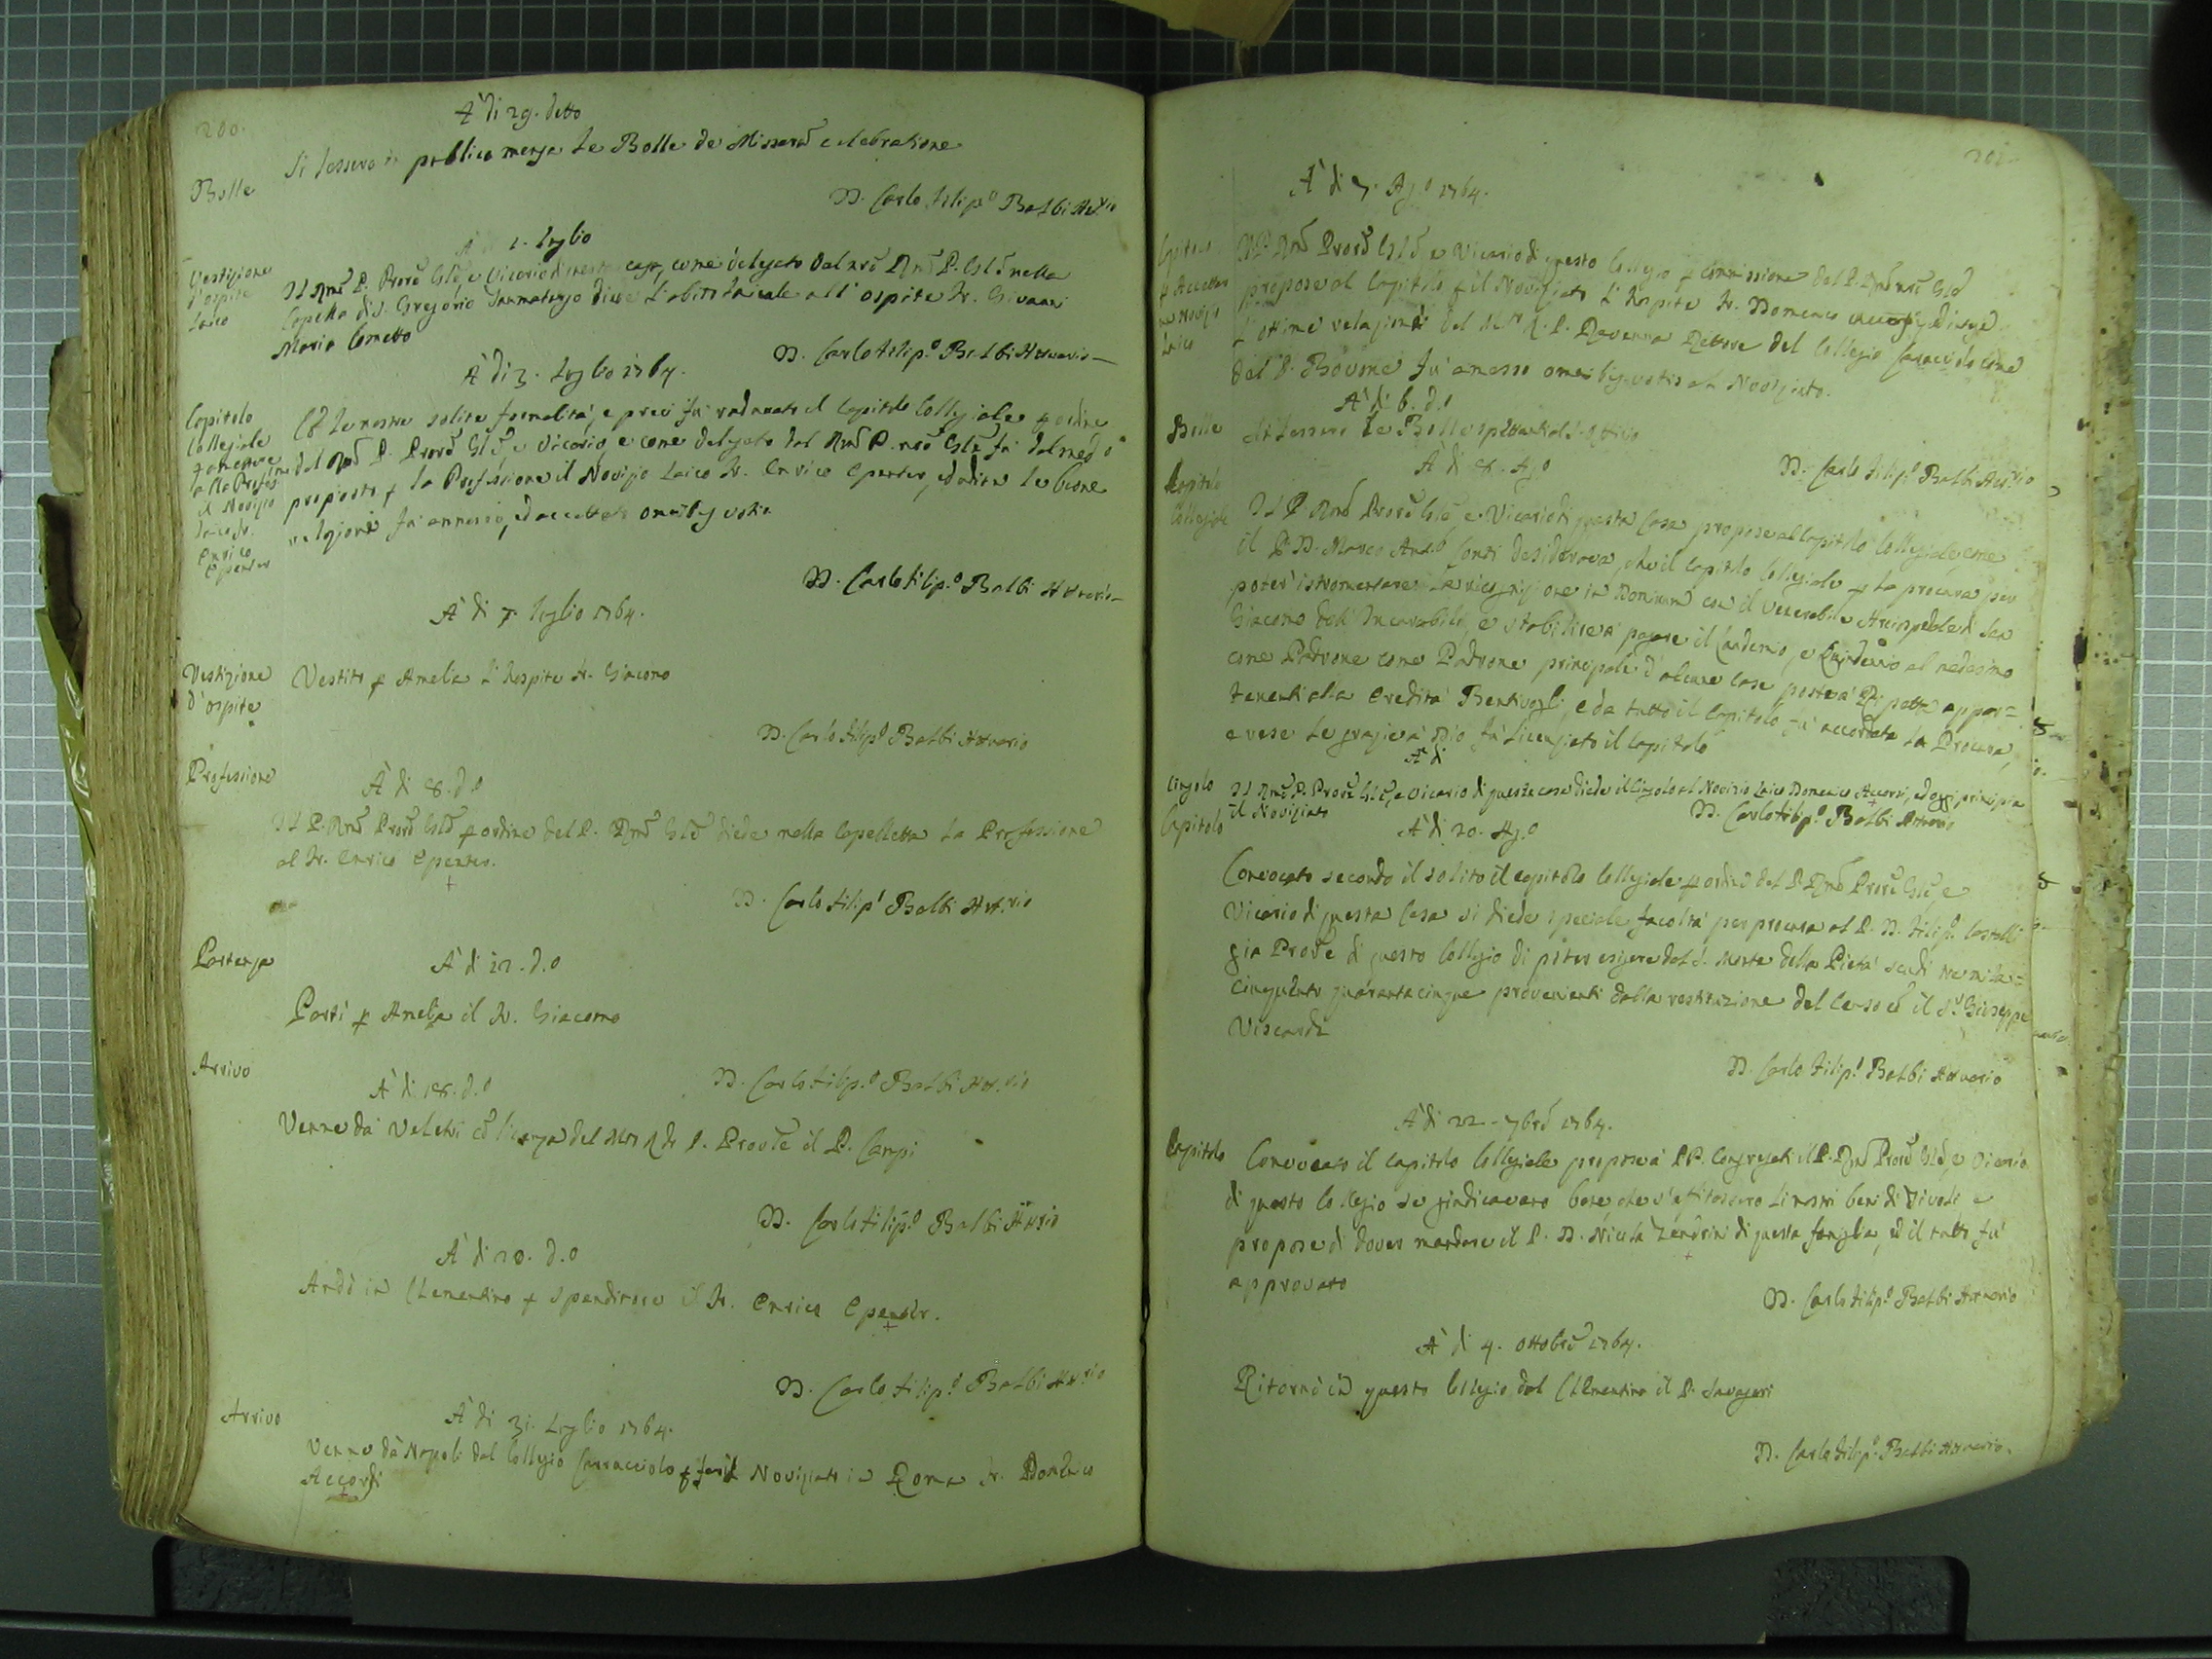 200.
A' di 29. detto
Bolle
Si lessero in publica mensa le Bolle de Missarū celebratione
D. Carlo Filip.o Balbi Att.rio
A di 1. Luglio
Vestizione
d'ospite
laico
Il Rmō P. Prorē Glē, e Vicario di questa casa, come delegato dal nrō Rmō P. Glē nella
Capella di S. Gregorio Taumaturgo diede l'abito laicale all'ospite Fr. Giovanni
Maria Cometto
D. Carlo Filip.o Balbi Attuario
A' di 3. Luglio 1764.
Capitolo
Collegiale
alla Profes.
il Novizio
laico Fr.
Enrico
Epenter
Cō le nostre solite formalità, e preci fù radunato il Capitolo Collegiale p ordine
del Rmō P. Prorē Glē, e Vicario, e come delegato dal Rmō P. nrō Glē fù dal med.o
proposto p la Professione il Novizio Laico Fr. Enrico Epenter, ed udite le buone
relazioni fù ammesso, ed accettato omnibus votis
D. Carlo Filip.o Balbi Attuario
A' di 7. Luglio 1764.
Vestizione
d'ospite
Vestito p Amelia l'Hospite Fr. Giacomo
D. Carlo Filip.o Balbi Attuario
Professione
A' di 8. d.o
Il P. Rmō Prorē Glē p ordine del P. Rmō Glē diede nella Capelletta la Professione
al Fr. Enrico Epenter.
D. Carlo Filip.o Balbi Att.rio
Partenza
A' di 12. d.o
Partì p Amelia il Fr. Giacomo
D. Carlo Filip.o Balbi Att.rio
Arrivo
A' di 18. d.o
Venne da Veletri cō licenza del M. R. P. Provle il P. Campi
D. Carlo Filip.o Balbi Att.rio
A' di 20. d.o
Andò in Clementino p Spenditore il Fr. Enrico Epenter.
D. Carlo Filip.o Balbi Att.rio
Arrivo
A' di 31. Luglio 1764.
Venne da Napoli dal Collegio Carracciolo p far il Noviziato in Roma Fr. Domenico
Accorsi
201.
A' di 5. Ag.o 1764.
Capitolo
p Accettar
un Novizio
laico
Il P. Rmō Prorē Glē e Vicario di questo Collegio p commissione del P. Rmō nrō Glē
propose al Capitolo p il Noviziato l'Hospite Fr. Domenico Accorsi,
l'ottime relazioni del M. R. P. Ravenna Rettore del Collegio Caracciolo come
del P. Bovone fù amesso omnibus votis al Noviziato.
A' di 6. d.o
Bolle
Si lessero le Bolle spettanti al S. Offizio
D. Carlo Filip.o Balbi Att.rio
A' di 8. Ag.o
Capitolo
Collegiale
Il P. Rmō Prorē Glē, e Vicario di questa Casa propose al Capitolo Collegiale come
il P. D. Marco Ant.o Conti desiderava, che il Capitolo Collegiale p la procura per
poter istromentare la ricognizione in Dominum con il Venerabile Arcispedale di San
Giacomo degl'Incurabili, e stabilire a' pagare il Laudemio, e Quindenio al medesimo
come Padrone come Padrone principale d'alcune case poste à Ripetta appar=
tenenti alla Eredità Bentivogli, e da tutto il Capitolo fù accordata la Procura,
e rese le grazie à Dio fù licenziato il Capitolo
A di
Cingolo
Il Rmō P. Prorē Glē, e Vicario di questa casa diede il Cingolo al Novizio Laico Domenico Accorsi, ed oggi principia
il Noviziato
D. Carlo Filip.o Balbi Attuario
Capitolo
A' di 20. Ag.o
Convocato secondo il solito il capitolo Collegiale p ordine del P. Rmō Prorē Glē, e
Vicario di questa Casa si diede speciale facoltà per procura al P. D. Filip.o Castelli
già Prove di questo Collegio di poter esigere dal S. Monte della Pietà scudi
cinquecento quarantacinque provenienti dalla restituzione del Censo cō il S.r Giuseppe
Viscardi
D. Carlo Filip.o Balbi Attuario
A' di 22. 7brē 1764.
Capitolo
Convocato il Capitolo Collegiale propose à PP. Congregati il P. Rmō Prorē Glē, e Vicario
di questo Collegio se giudicavano bene che s'affitassero li nostri beni di Tivoli e
propose di dover mandare il P. D. Nicola Zendrini di questa famiglia, ed il tutto fù
approvato
D. Carlo Filip.o Balbi Attuario
A' di 4. Ottobrē 1764.
Ritornò in questo Collegio dal Clementino il P. Savageri
D. Carlo Filip.o Balbi Attuario.